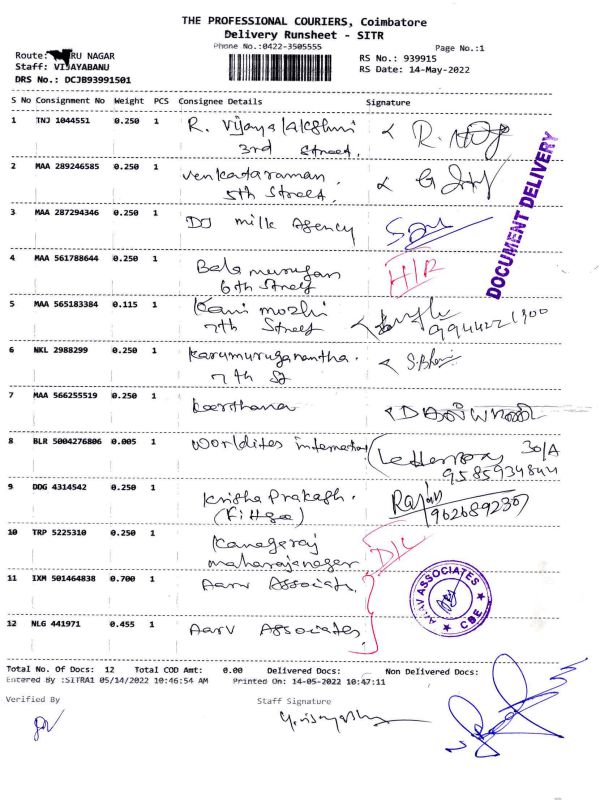 THE PROFESSIONAL COURIERS, Coimbatore
Delivery Runsheet - SITR
Phone No.:0422-3505555
Page No.:1
Route: RU NAGAR
RS No.: 939915
Staff: VIJAYABANU
RS Date: 14-May-2022
DRS No.: DCJB93991501
S No Consignment No Weight PCS Consignee Details Signature
1 TNJ 1044551 0.250 1 R. Vijayalakshmi
3rd Street.
2 MAA 289246585 0.250 1 Venkataraman.
5th Street.
3 MAA 287294346 0.250 1 DJ milk Agency
4 MAA 561788644 0.250 1 Bala murugan
6th Street
5 MAA 565183384 0.115 1 Kani mozhi
7th Street
6 NKL 2988299 0.250 1 Karumuruganantha.
7th St
7 MAA 566255519 0.250 1 Keerthana
8 BLR 5004276806 0.005 1 Worldites
Letterbox 30/A
9 DDG 4314542 0.250 1 Krisha Prakash.
10 TRP 5225310 0.250 1 Kanagaraj
maharajanagar
11 IXM 501464838 0.700 1 Aarv Associat.
12 NLG 441971 0.455 1 Aarv Associates
DOCUMENT DELIVERY
AARAV ASSOCIATES
CBE
Total No. Of Docs: 12 Total COD Amt: 0.00 Delivered Docs: Non Delivered Docs:
Entered By :SITRA1 05/14/2022 10:46:54 AM Printed On: 14-05-2022 10:47:11
Verified By Staff Signature